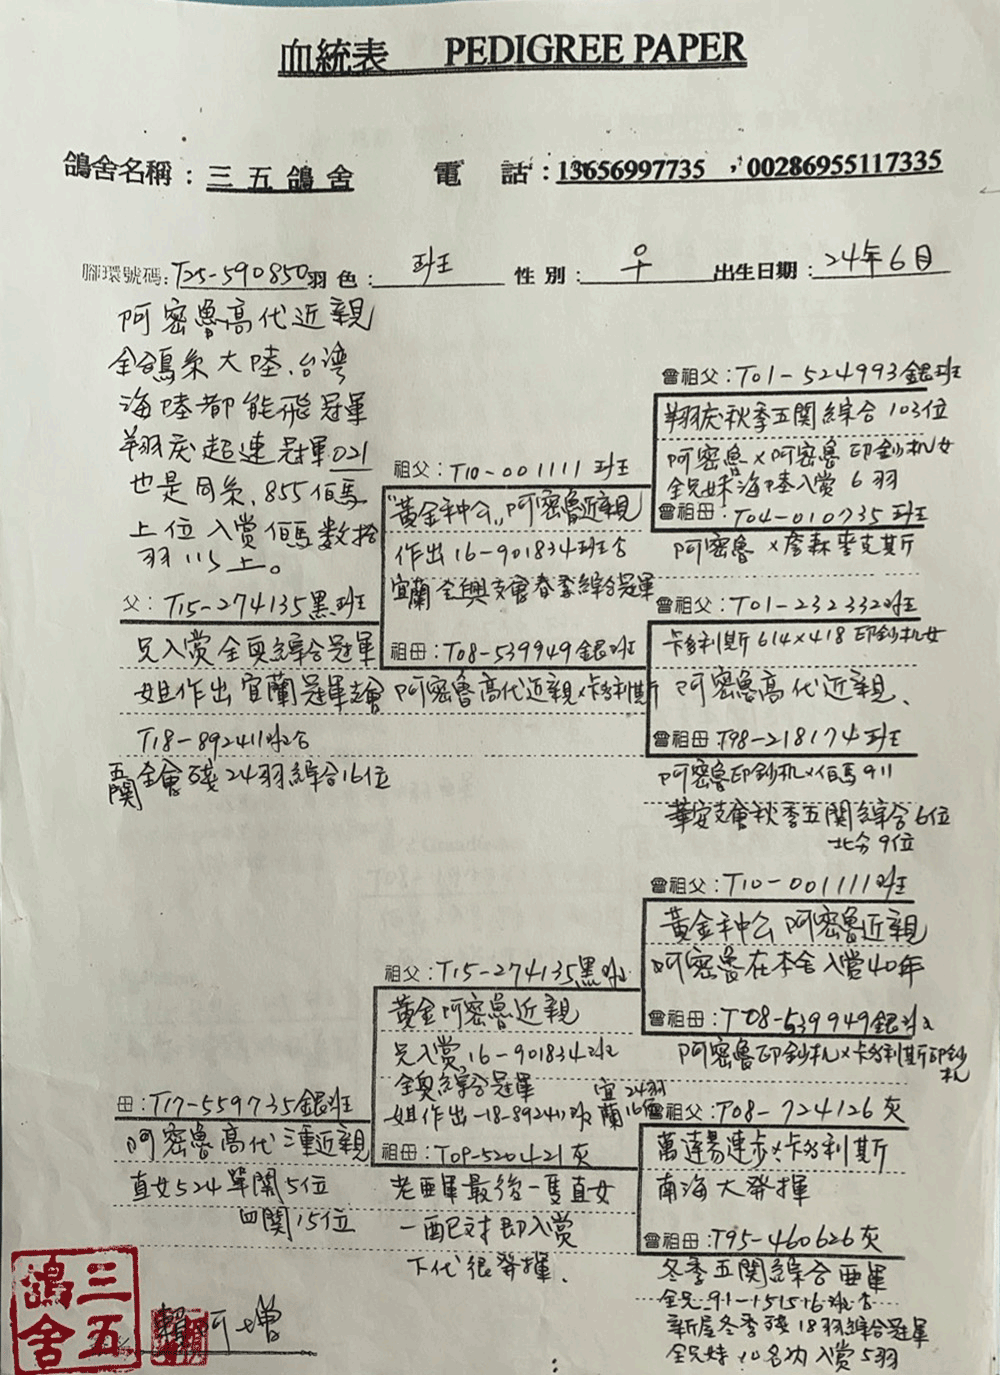 血統表 PEDIGREE PAPER
鴿舍名稱：三五鴿舍 電話：13656997735，00286955117335
腳環號碼：T25-590850 羽色：班 性別：♀ 出生日期：24年6月
阿密魯高代近親
全鴿系大陸、台湾
海陸都能飛冠軍
翔庆超速冠軍021
也是同系，855佰馬
上位入赏佰馬數拾
羽以上。
父：T15-274135黑班
兄入赏全奥綜合冠軍
姐作出宜蘭冠軍支會
T18-892411班
五関全會殘24羽綜合16位
祖父：T10-001111 班
"黄金种公"阿密魯近親
作出16-901834班
宜蘭全興支會春季綜合冠軍
祖母：T08-539949銀班
阿密魯高代近親×卡多利斯
曾祖父：T01-524993銀班
翔庆秋季五関綜合103位
阿密魯×阿密魯印鈔机女
全兄妹海陸入赏6羽
曾祖母：T04-010735班
阿密魯×詹森麦克斯
曾祖父：T01-232332班
卡多利斯614×418印鈔机女
阿密魯高代近親、
曾祖母：T98-218174班
阿密魯印鈔机×佰馬911
華安支會秋季五関綜合6位
北分9位
母：T17-559735銀班
阿密魯高代三重近親
直女524單関5位
四関15位
祖父：T15-274135黑班
黄金阿密魯近親
兄入赏16-901834班
全奥綜合冠軍
姐作出-18-892411班 宜蘭 24羽 16位
祖母：T09-520421灰
老亜軍最後一隻直女
一配对即入赏
下代很發揮、
曾祖父：T10-001111班
黄金种公阿密魯近親
阿密魯在本舍入赏40年
曾祖母：T08-539949銀班
阿密魯印鈔机×卡多利斯印鈔机
曾祖父：T08-724126灰
萬達易連步×卡多利斯
南海大發揮
曾祖母：T95-460626灰
冬季五関綜合亜軍
全兄91-151516班
新屋冬季殘18羽綜合冠軍
全兄姊10名内入赏5羽
三五鴿舍
賴阿增